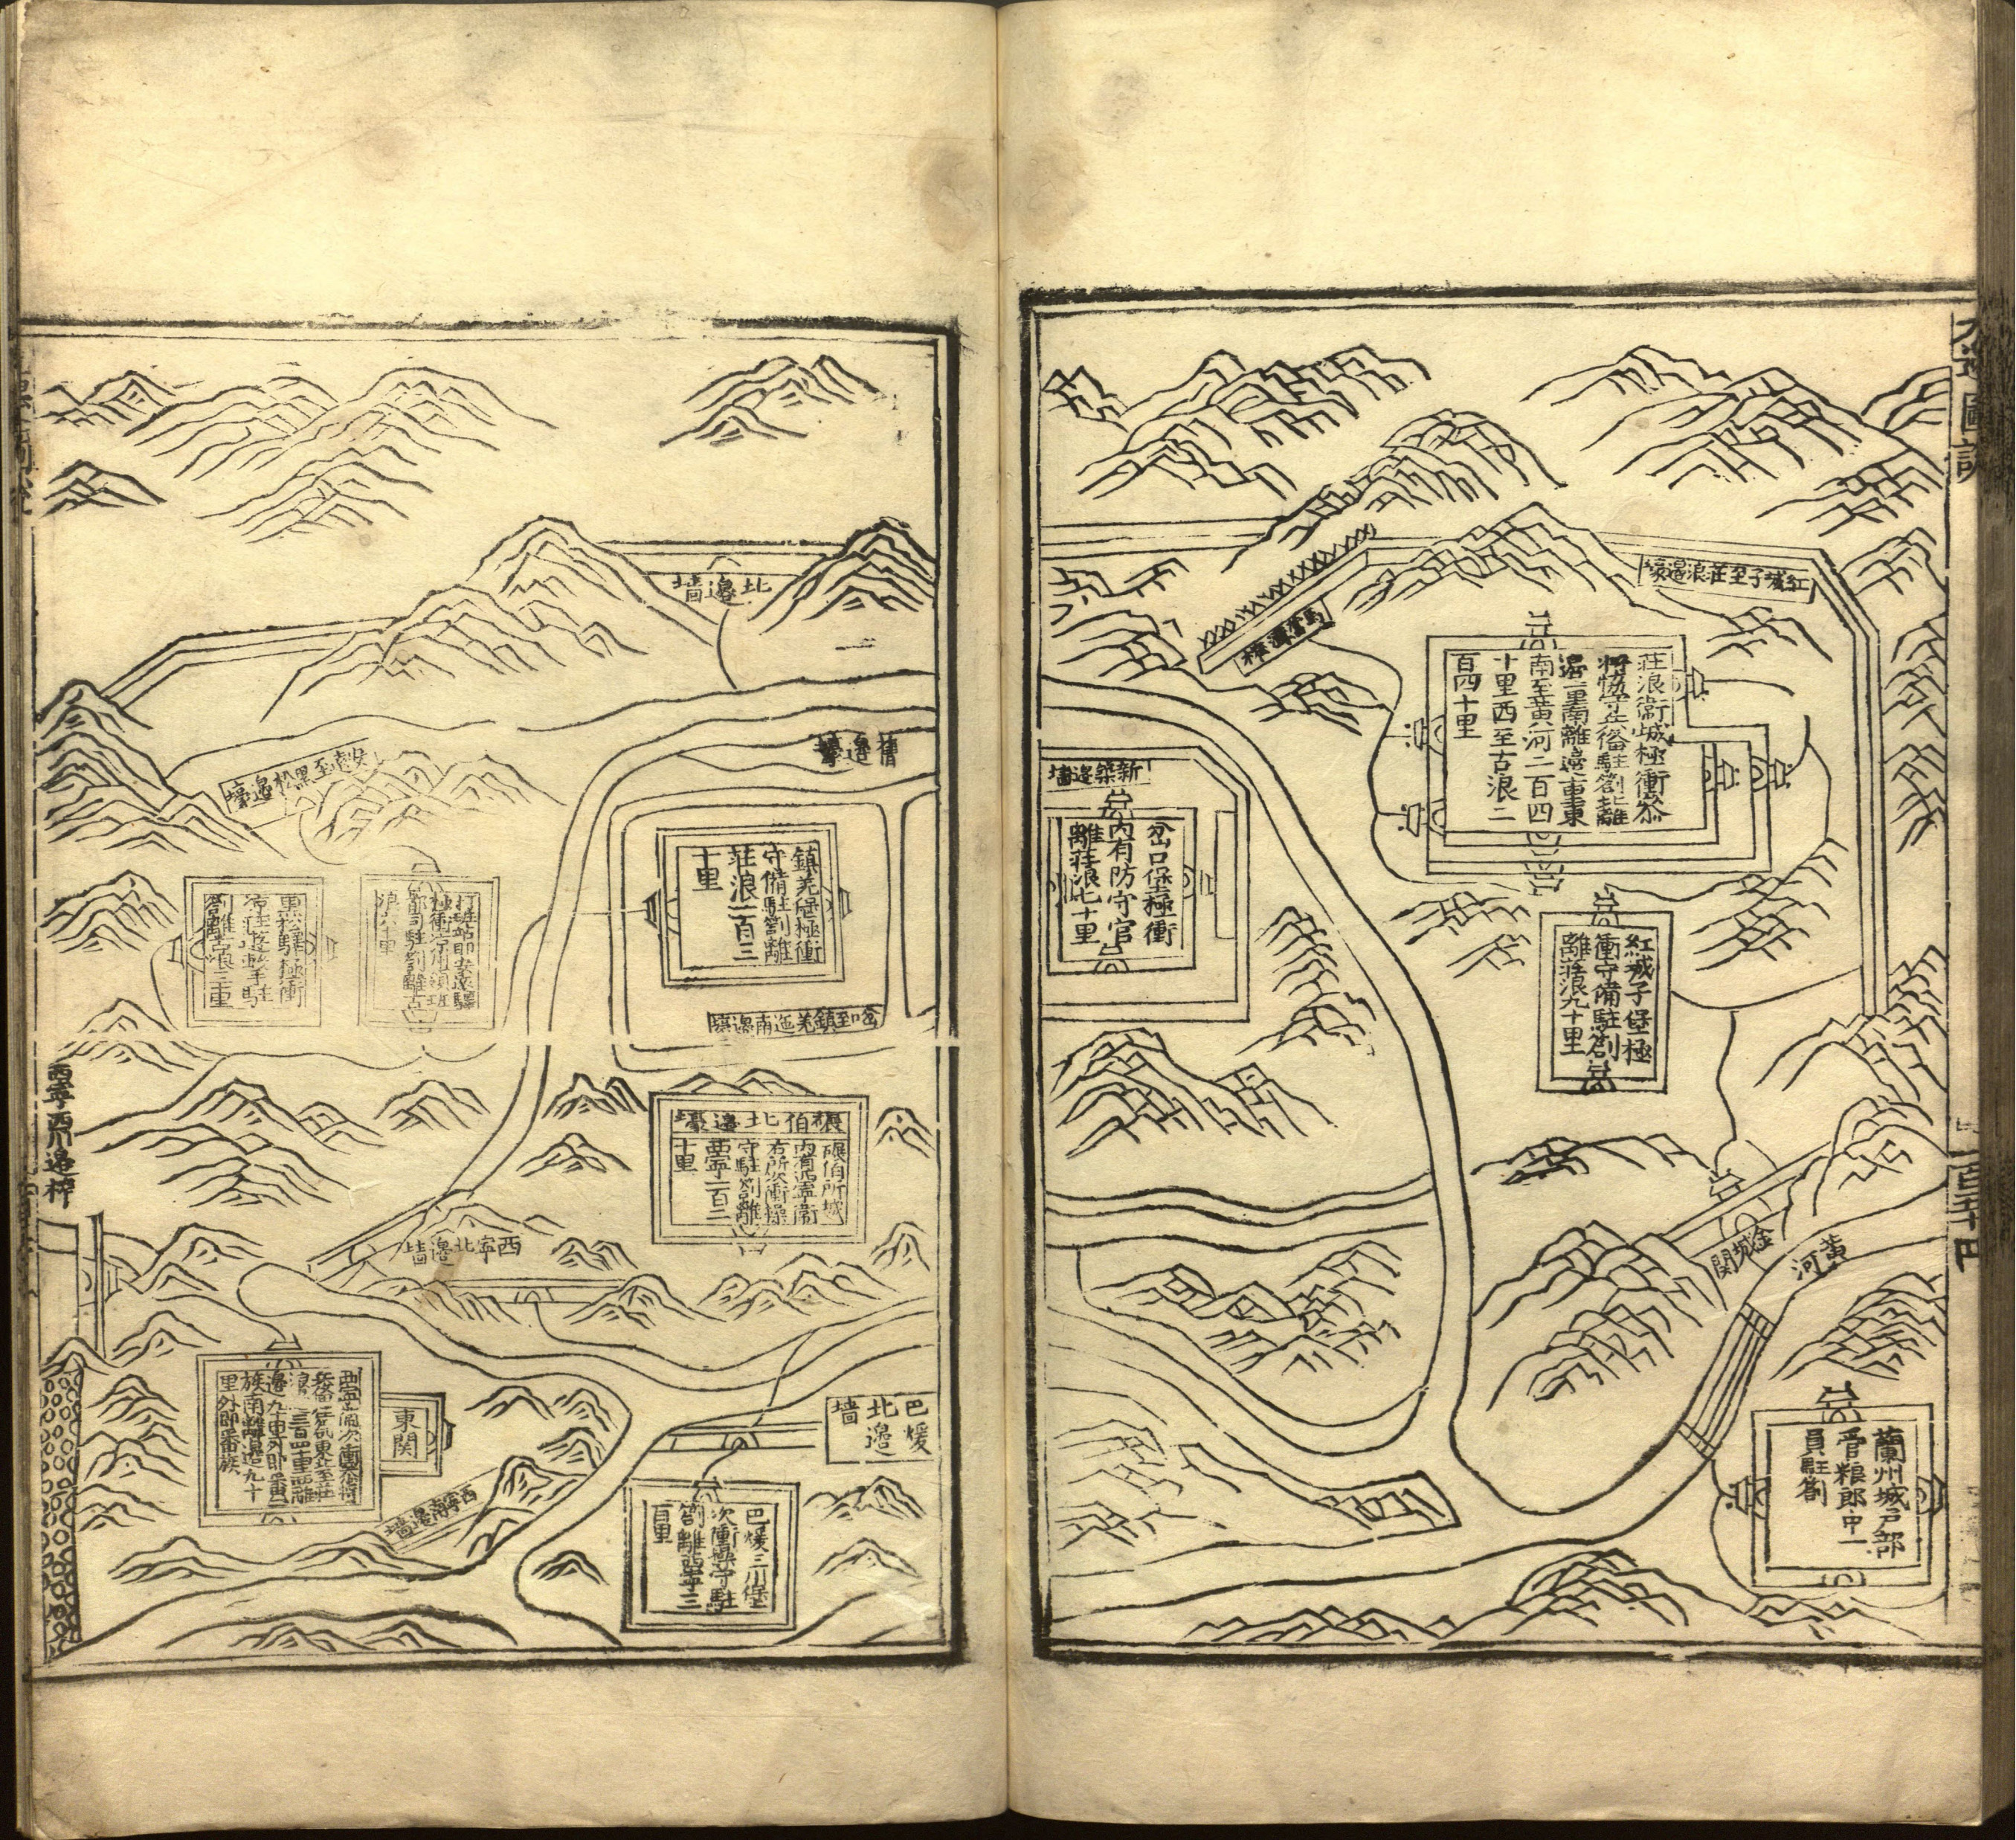 紅城子至莊浪邊壕
莊浪衛城極衝叅
將協守兵俗駐劄北離
南至黃河二百四
十里西至古浪二
百四十里
紅城子堡極
衝守備駐劄
離莊浪九十里
金城関
黃河
蘭州城戶部
管粮郎中一
員駐劄
新築邊墙
岔口堡極衝
內有防守官
離莊浪七十里
北邊墙
舊邊壕
鎮羌堡極衝
守備駐劄離
莊浪一百三
十里
岔口至鎮羌迤南邊壕
碾伯北邊壕
碾伯所城
內有西寧衛
右所次衝操
守駐劄離
西寧一百二
十里
巴煖
北邊
墙
巴煖三川堡
次衝操守駐
劄離西寧三
百里
安遠至黑松邊壕
黑松驛極衝
西寧北邊墙
東関
族南離邊九十
里外即番族
西寧南邊墙
西寧西川邊榨